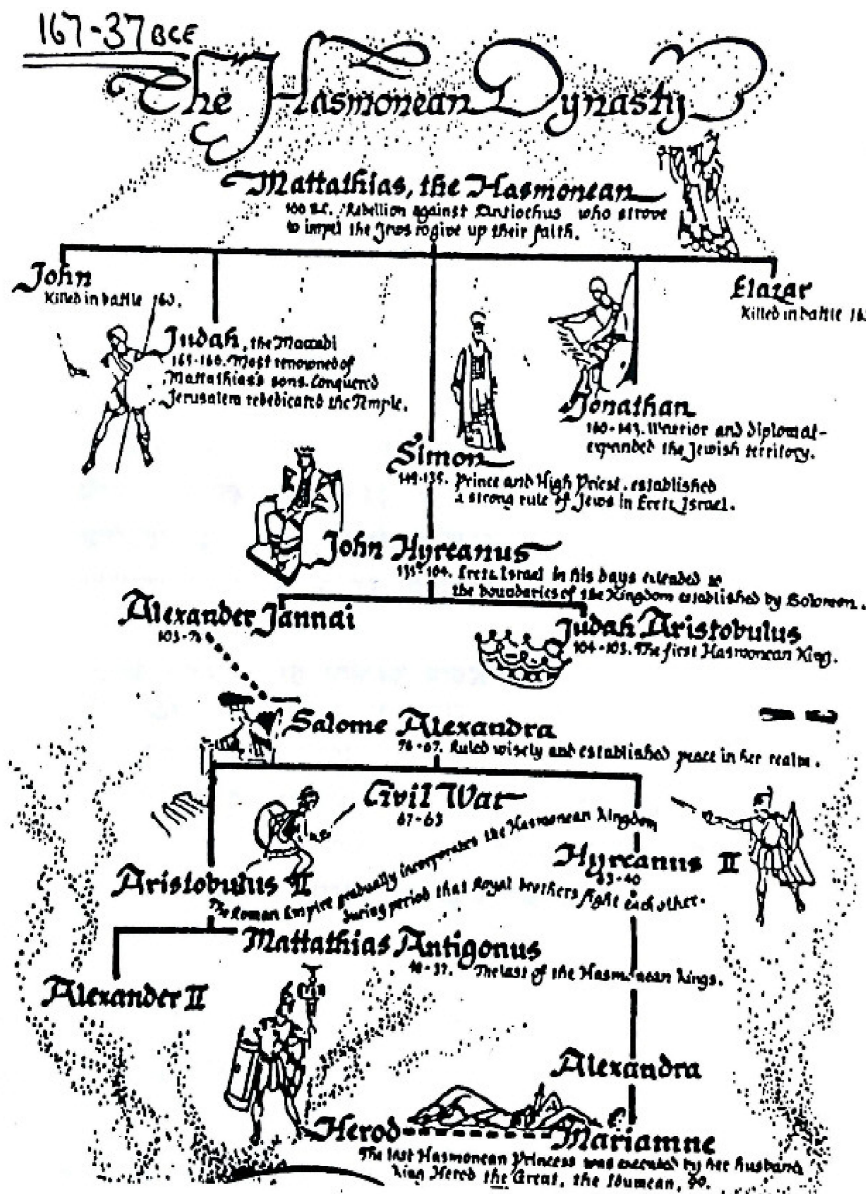 167-37 BCE
The Hasmonean Dynasty
Mattathias, the Hasmonean
Rebellion against Antiochus who strove
to impel the Jews to give up their faith.
John
Killed in battle
Elazar
Killed in battle
Judah, the Maccabi
Most renowned of
Mattathias's sons. Conquered
Jerusalem rededicated the Temple.
Jonathan
Warrior and diplomat-
expanded the Jewish territory.
Simon
Prince and High Priest. established
a strong rule of Jews in Eretz Israel.
John Hyrcanus
135-104. Eretz Israel in his days extended to
the boundaries of the Kingdom established by Solomon.
Alexander Jannai
Judah Aristobulus
104-103. The first Hasmonean King.
Salome Alexandra
76-67. Ruled wisely and established peace in her realm.
Civil War
67-63
Aristobulus II
Hyrcanus II
63-40
The Roman Empire gradually incorporates the Hasmonean Kingdom
during period that Royal brothers fight each other.
Mattathias Antigonus
40-37. The last of the Hasmonean Kings.
Alexander II
Alexandra
Herod
Mariamne
The last Hasmonean Princess was executed by her husband
King Herod the Great, the Idumean,